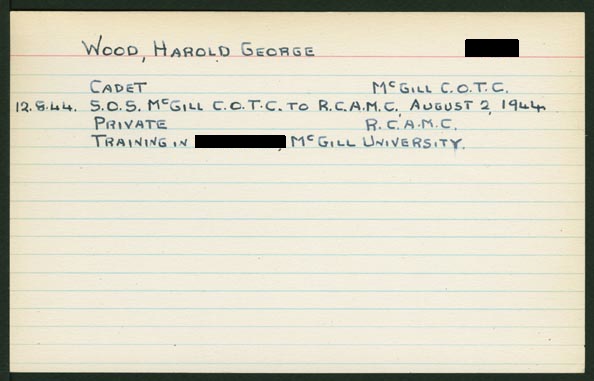 WOOD, HAROLD GEORGE
CADET McGILL C.O.T.C.
12.8.44. S.O.S. McGILL C.O.T.C. TO R.C.A.M.C., AUGUST 2, 1944.
PRIVATE R.C.A.M.C.
TRAINING IN , McGILL UNIVERSITY.